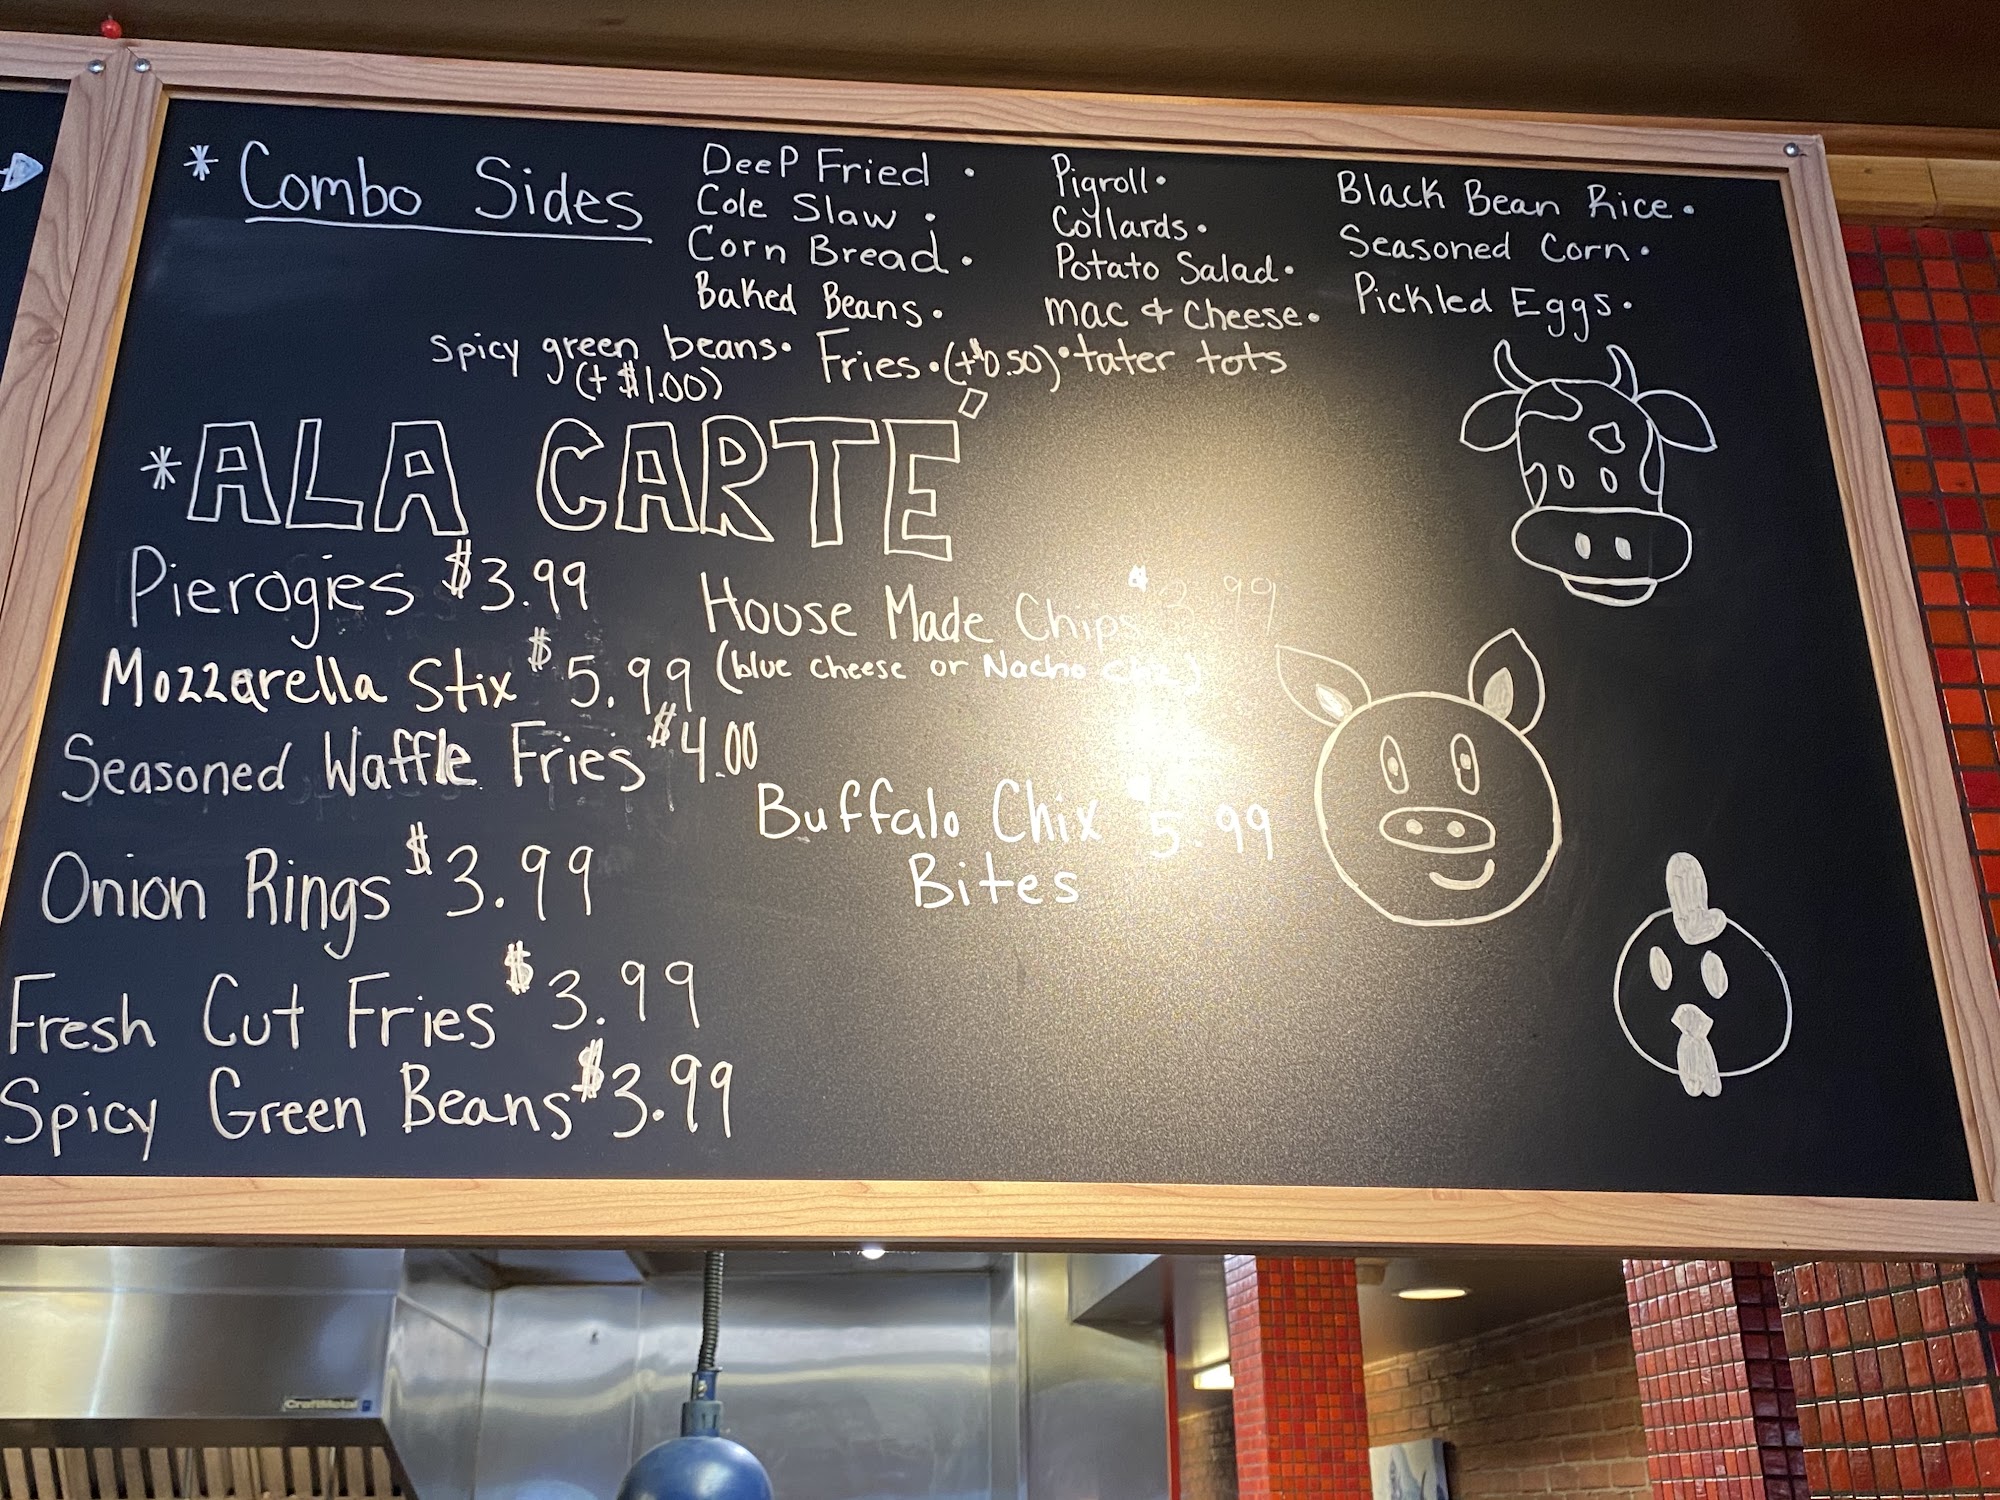 * Combo Sides
Deep Fried •
Cole Slaw •
Corn Bread •
Baked Beans •
Pigroll •
Collards •
Potato Salad •
mac & Cheese •
Black Bean Rice •
Seasoned Corn •
Pickled Eggs •
spicy green beans • Fries • (+$0.50) • tater tots
(+ $1.00)
*ALA CARTE'
Pierogies $3.99
Mozzarella Stix $5.99
Seasoned Waffle Fries $4.00
Onion Rings $3.99
Fresh Cut Fries $3.99
Spicy Green Beans $3.99
House Made Chips $3.99
(blue cheese or Nacho
Buffalo Chix $5.99
Bites
CraftMetal